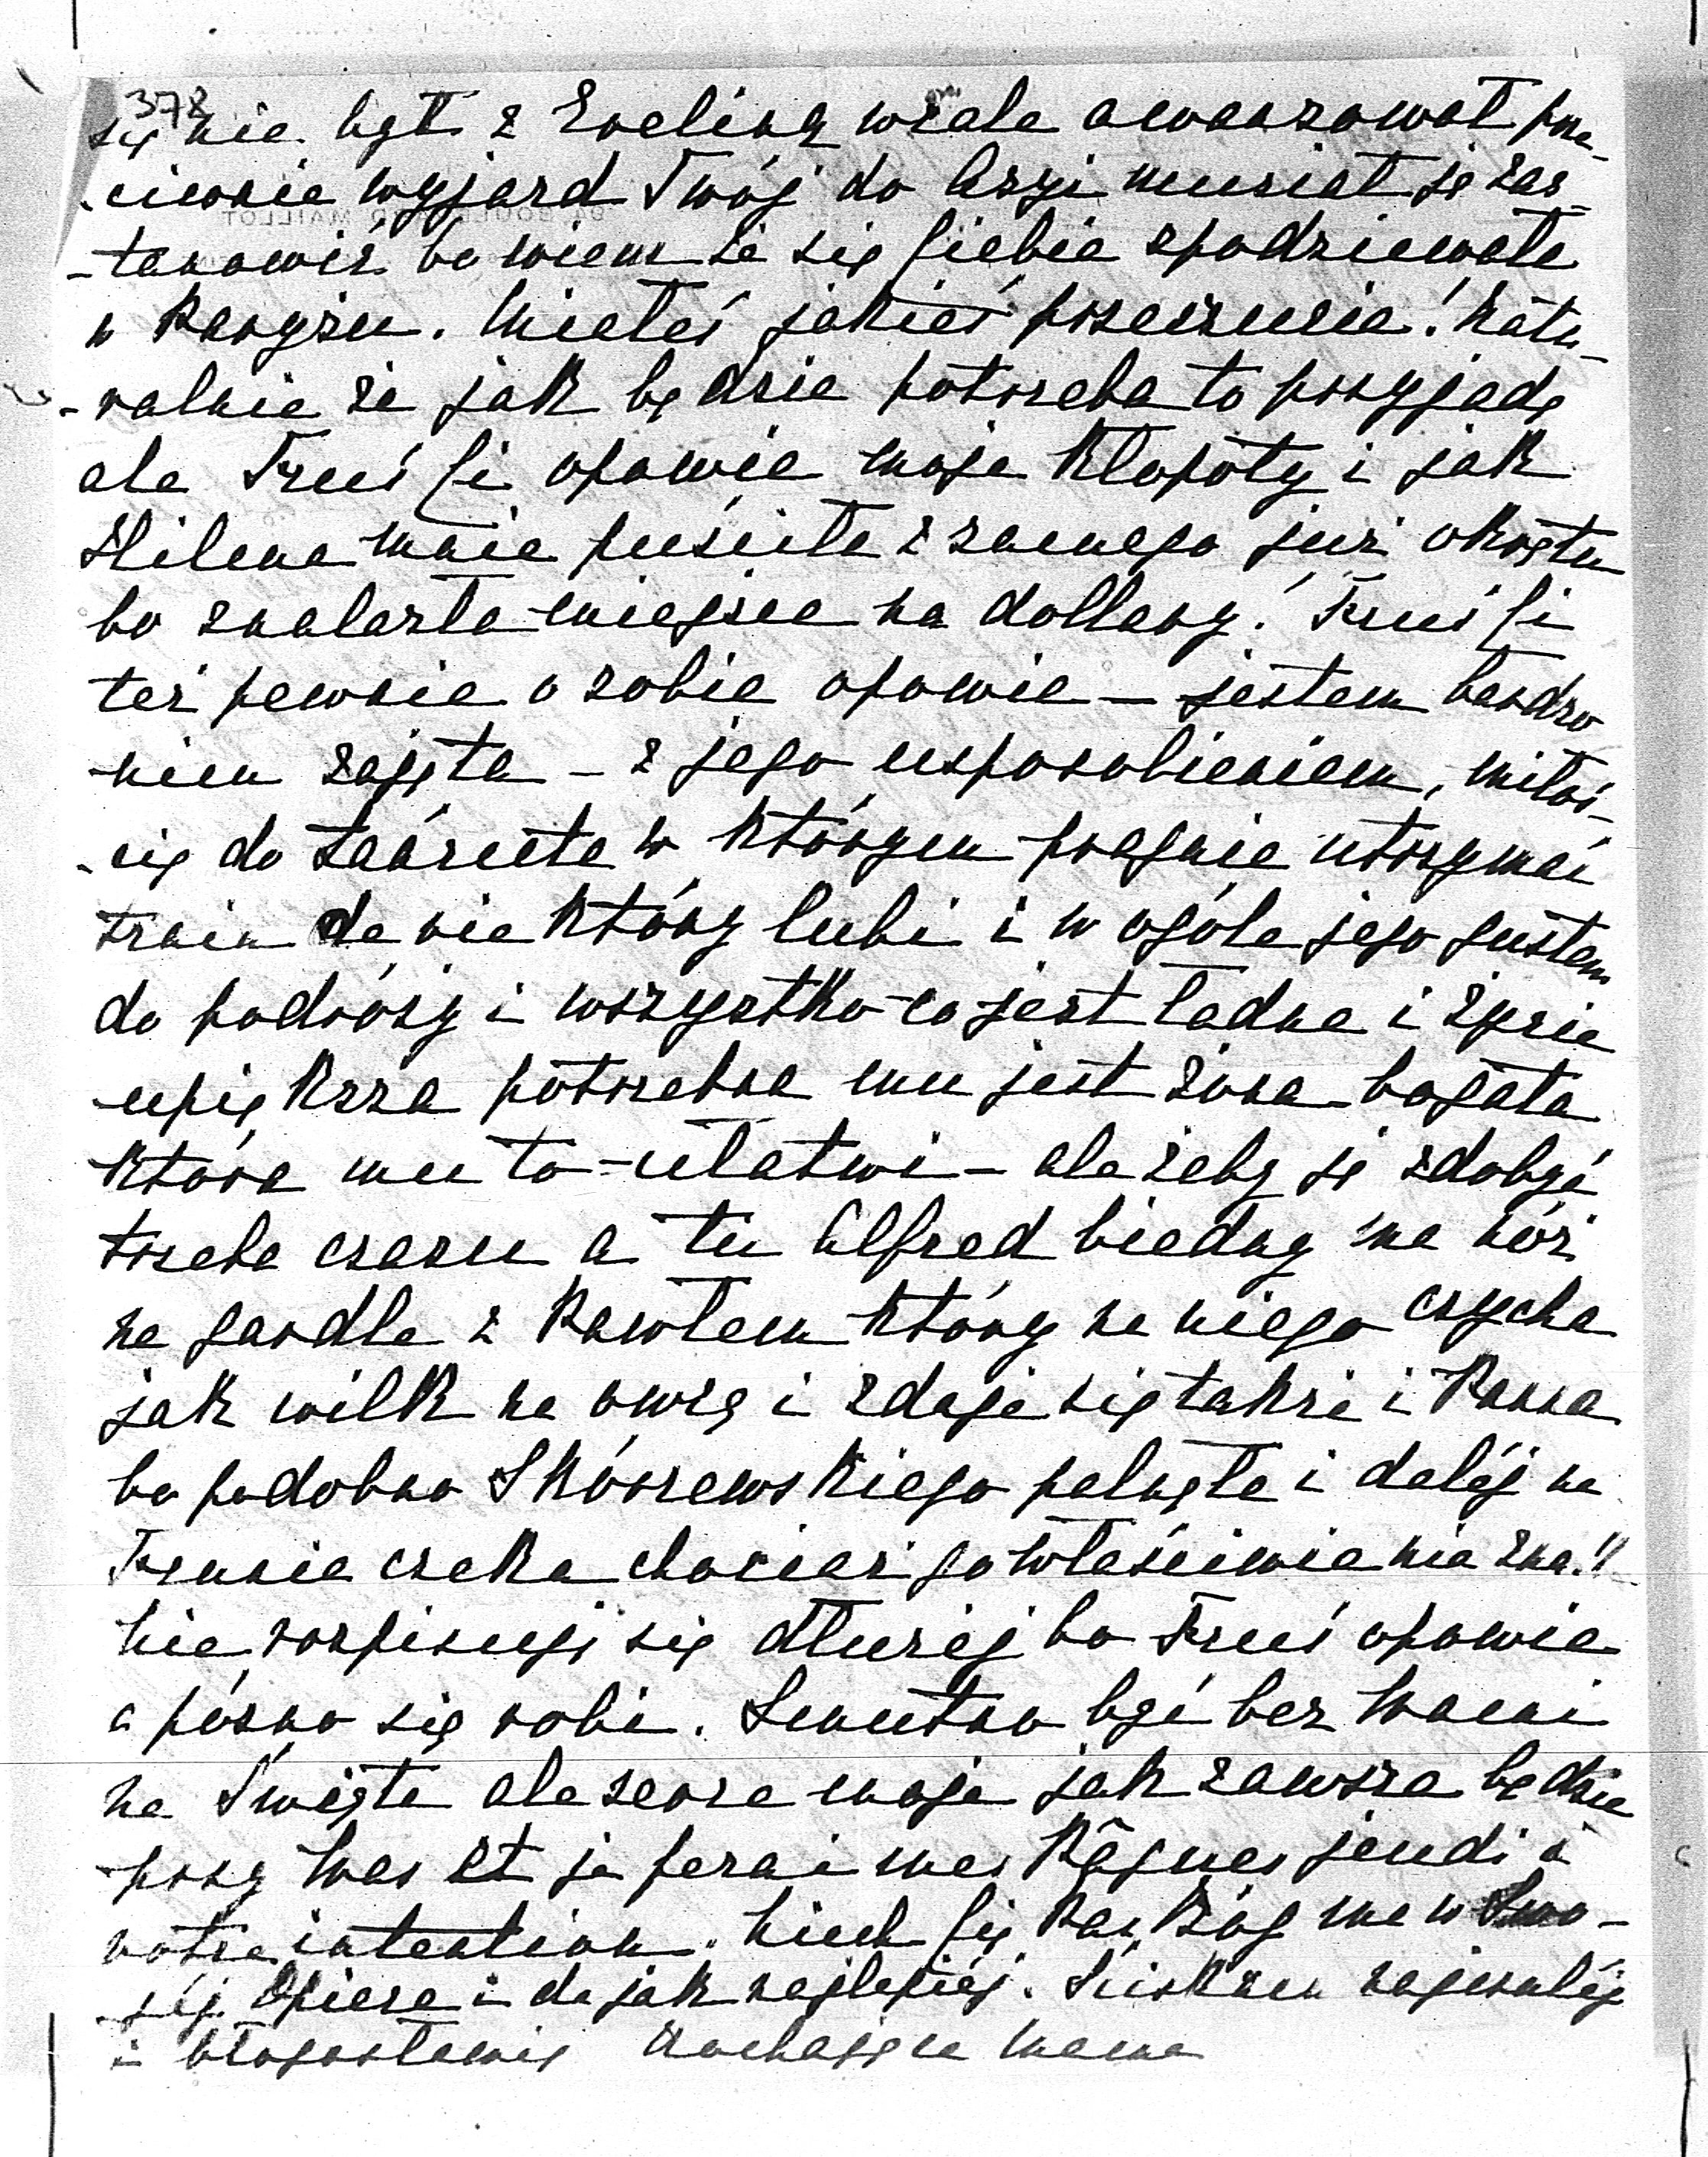 378
się nie był z Eweliną wcale awansował prze-
-ciwnie wyjazd Twój do Azyi musiał ją zas-
-tanowić bo wiem że się Ciebie spodziewała
w Paryżu. Miełeś jakieś przeczucie! Natu-
-ralnie że jak będzie potrzeba to przyjadę
ale Fruś Ci opowie moje kłopoty i jak
Hilena mnie puściła z samego już okrętu
bo znalazła miejsce na dollary! Fruś Ci
też pewnie o sobie opowie – jestem bardzo
niem zajęta – z jego usposobieniem, miłoś-
-cią do Łańcuta w którym pragnie utrzymać
train de vie który lubi i w ogóle jego gustem
do podróży i wszystko co jest ładne i życie
upiększa potrzebna mu jest żona bogata
która mu to ułatwi – ale żeby ją zdobyć
trzeba czasu a tu Alfred biedny ma nóż
na gardle z Pawłem który na niego czycha
jak wilk na owcę i zdaje się także i Panna
bo podobno Skórzewskiego palnęła i daléj na
Frusia czeka chociaż go właściwie nie zna!!
Nie rozpisuję się dłużéj bo Fruś opowie
a pózno się robi. Smutno być bez Wami
na Święta ale serce moje jak zawsze będzie
przy Was et je ferai mes Pâques jeudi à
votre intention. Niech Cię Pan Bóg ma w Swo-
-jéj Opiece i da jak najlepiéj. Ściskam najczuléj
i błogosławię Kochająca Mama
84 BOULEVARD MAILLOT